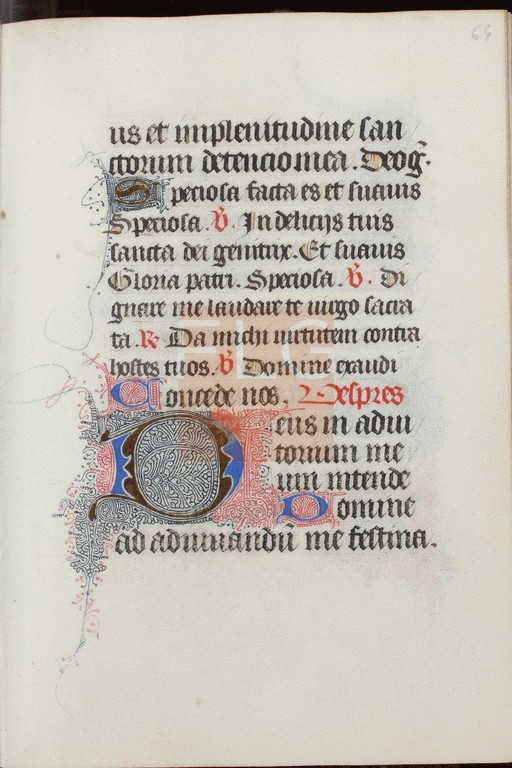 64
us et in plenitudine san
ctorum detencio mea. Deog̃.
Speciosa facta es et suauis
Speciosa. V. In delicijs tuis
sancta dei genitrix. Et suauis
Gloria patri. Speciosa. V. Di
gnare me laudare te uirgo sacra
ta. R Da michi uirtutem contra
hostes tuos. V Domine exaudi
Concede nos. Vespres
Deus in adiu
torium me
um intende
Domine
ad adiuuandũ me festina.
FLG